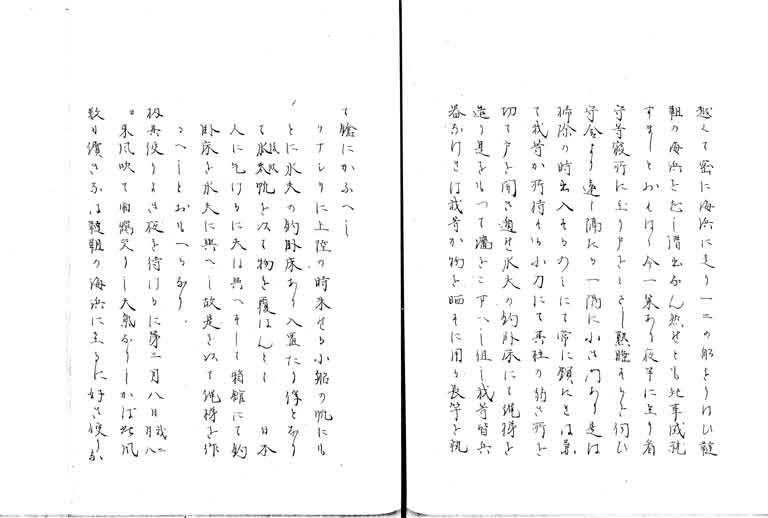 越えて密に海浜に走り一二の船をうはひ韃
靼の海浜を志し潜出なん然れとも此事成就
すましとおもはゝ今一策あり夜半に至り看
守等寝所に至り戸をさし熟睡するを伺ひ
守舎より遠く隔たる一隅に小き門あり是は
掃除の時出入するのみにて常に鎖しきは
て我等か所持する小刀にて其柱の釣き所を
切て戸を開き遁せ水夫の釣卧床にて縄梯を
造り是をもつて濤をこすへし但し我等皆兵
器なけれは我等か物を晒すに用る長竿を執
て鎗にかふへし
クナシリに上陸の時来せる小船の帆にも
とに水夫の釣卧床あり入置たり後となり
て水夫帆を以て物を覆はんとて 日本
人に乞けるに夫は与へすして箱館にて釣
卧床を水夫に与へし故是を以て縄梯を作
るへしとおもへるなり
扨其後りよき夜を待けるに第二月八日我二月八
日東風吹て雨霧交りし天気なりしかは此風
数日續きなは韃靼の海浜に至るに好き便りな